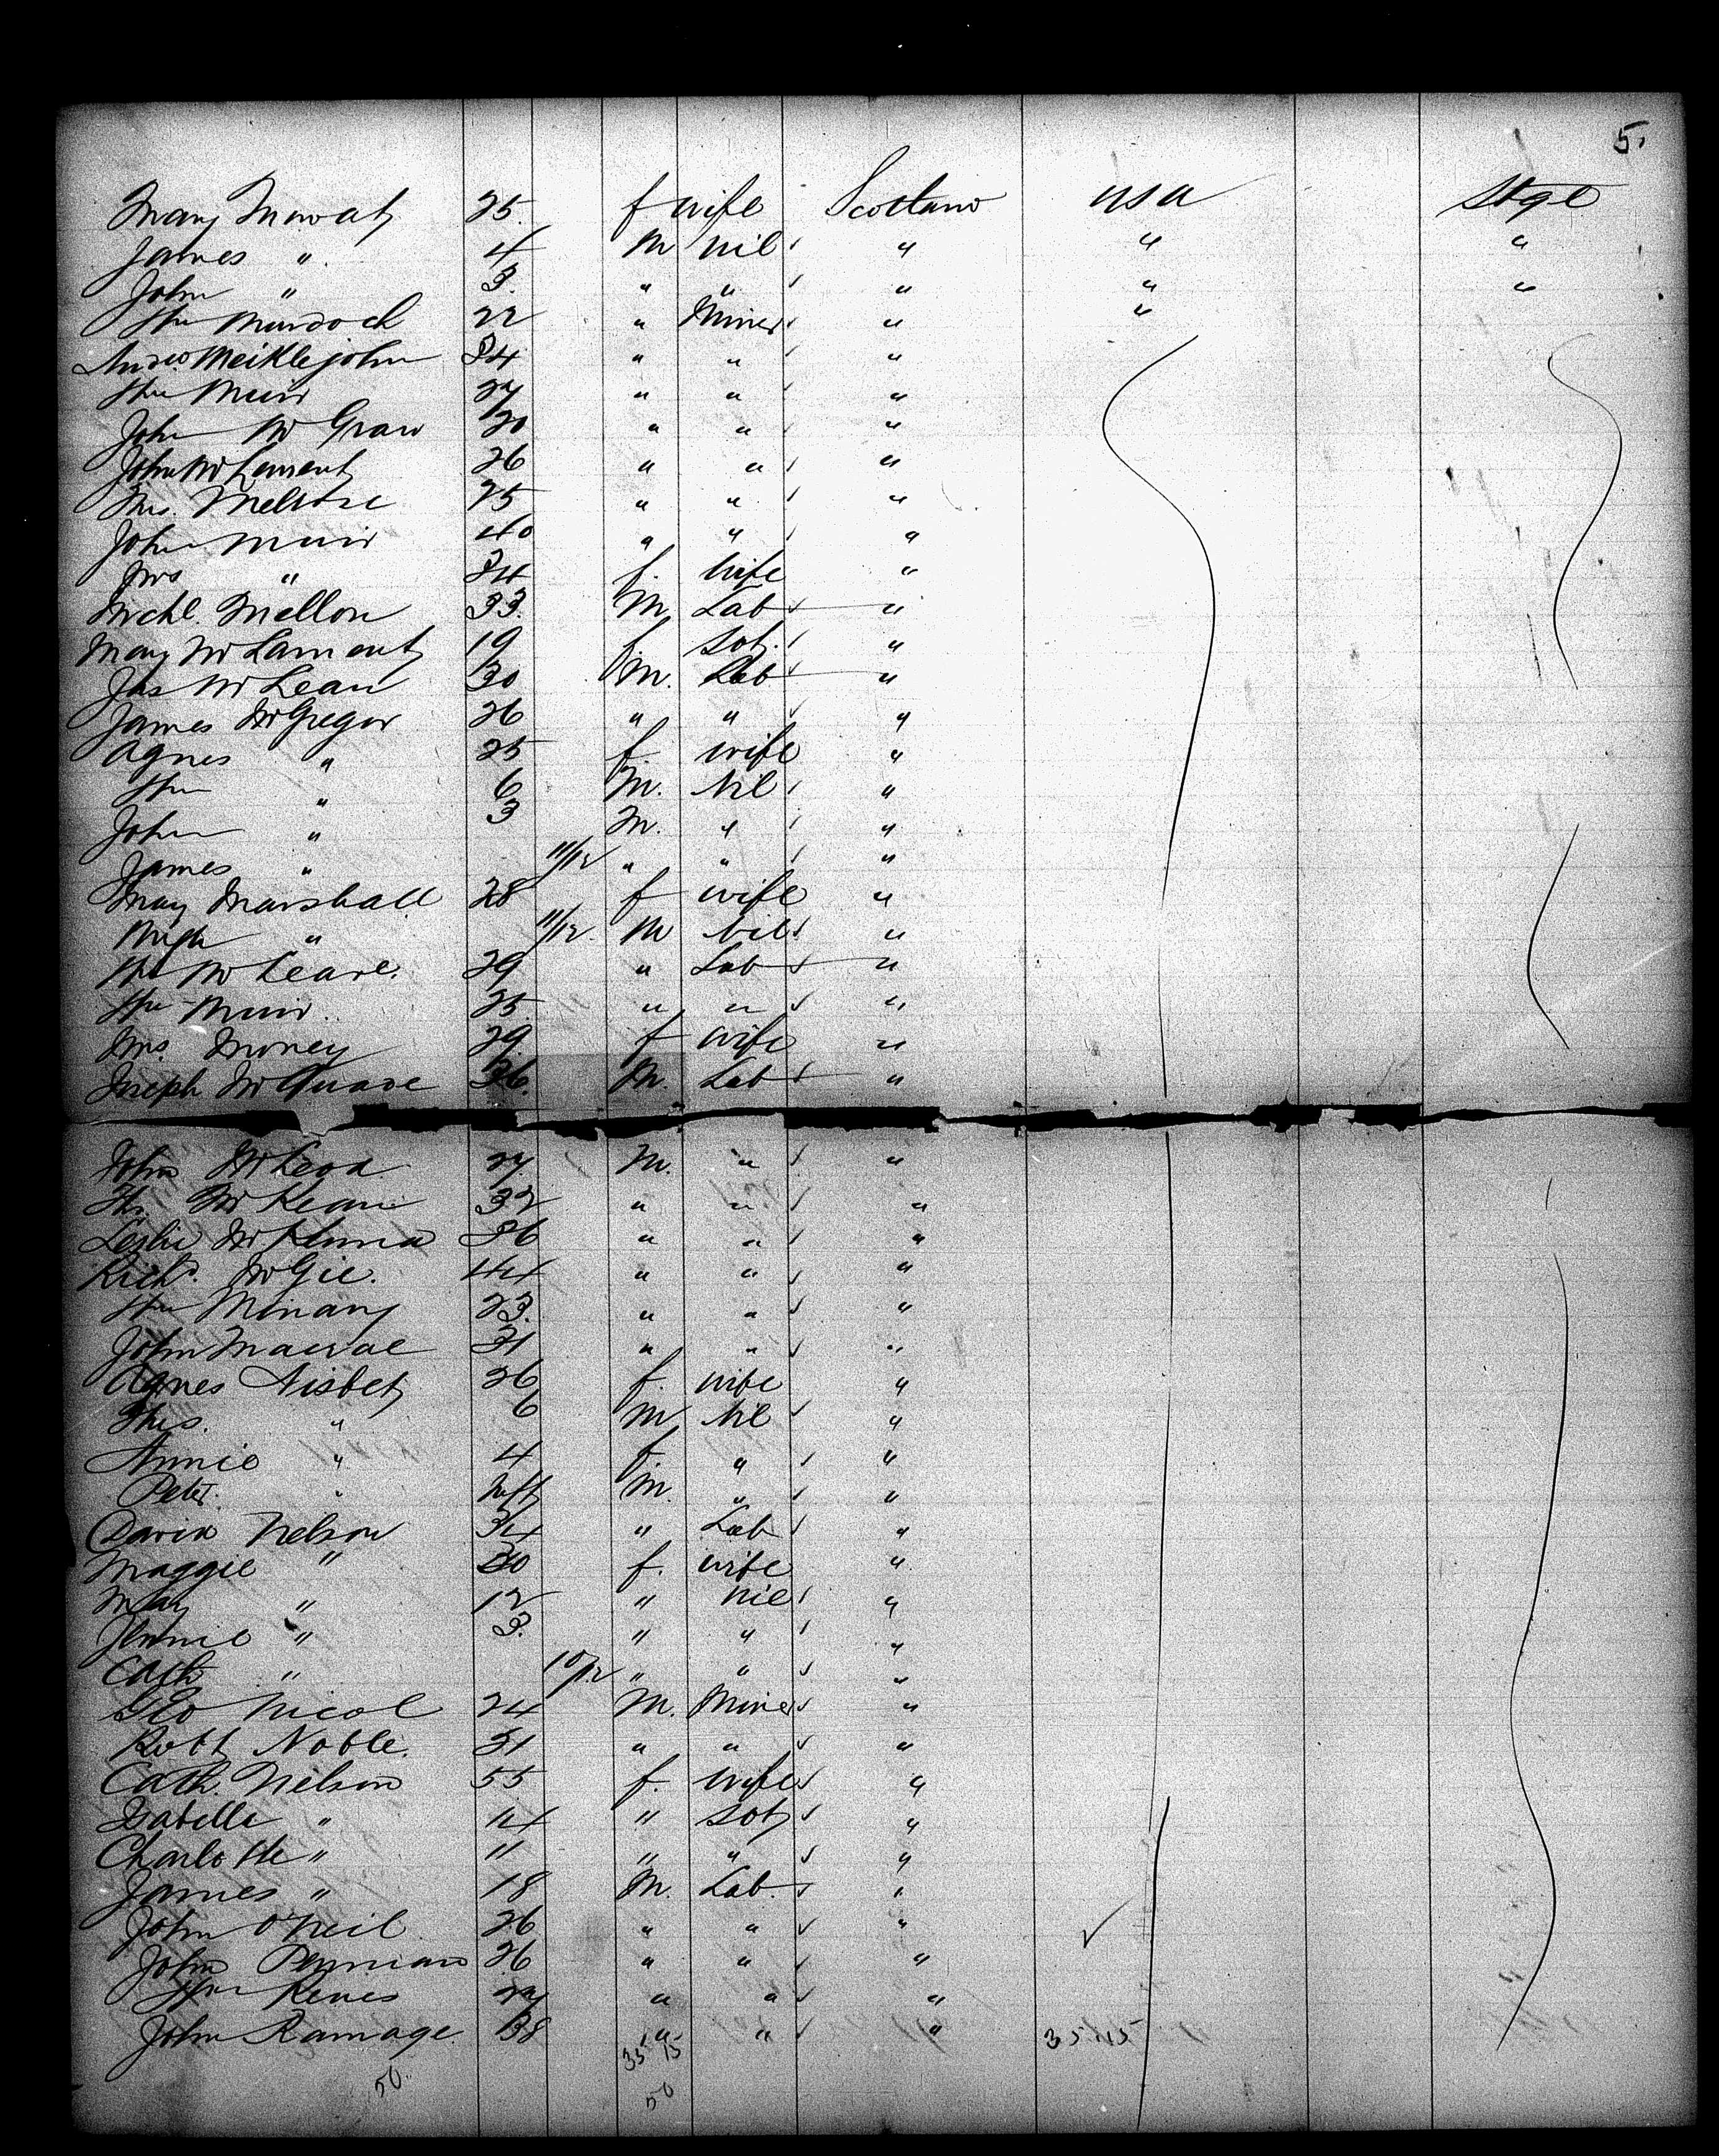 5.
Mary Mowat 25. f wife Scotland USA Stge
James " 4 M nil " " "
John " 3. " " " " "
Wm Murdoch 22 " Miner " "
Andw. Meiklejohn 34 " " "
Wm Muir 27 " " "
John McGraw 20 " " "
John McLament 26 " " "
Thos. Melrose 25 " " "
John Muir 40 " " "
Mrs " 34 f. wife "
Michl. Mellon 33. M. Lab "
Mary McLament 19 f. "
Jas McLean 30 M. Lab "
James McGregor 26 " " "
Agnes " 25 f wife "
Wm " 6 M. Nil "
John " 3 M. " "
James " 11/12 " " "
May Marshall 28 f wife "
Hugh " 11/12. M nil "
29 " Lab "
Wm Muir. 25. " " "
Mrs. Money 29. f wife "
Joseph 36. M. Lab "
John McLeod 27. M. " "
32 " " "
Leslie 36 " " "
Richd. McGie. 44 " " "
Wm 23. " " "
John Macrae 31 " " "
Agnes Nisbet 26 f. wife "
Thos. " 6 M Nil "
Annie " 4 f. " "
Peter. " Inft M. " "
David Nelson 34 " Lab "
Maggie " 30 f. wife "
May " 12 " nil "
Jennie " 3. " " "
Cath " 10/12 " " "
Geo Nicol 24 M. Miner "
Robt Noble. 31 " " "
Cath. Nelson 55 f. wife "
Isabella " 14 " "
Charlotte " 11 " " "
James " 18 M. Lab. "
John O'Neil 26 " " "
John 26 " " "
Wm 27 " " "
John Ramage 38 " " " 35 15
35 15
50.
50